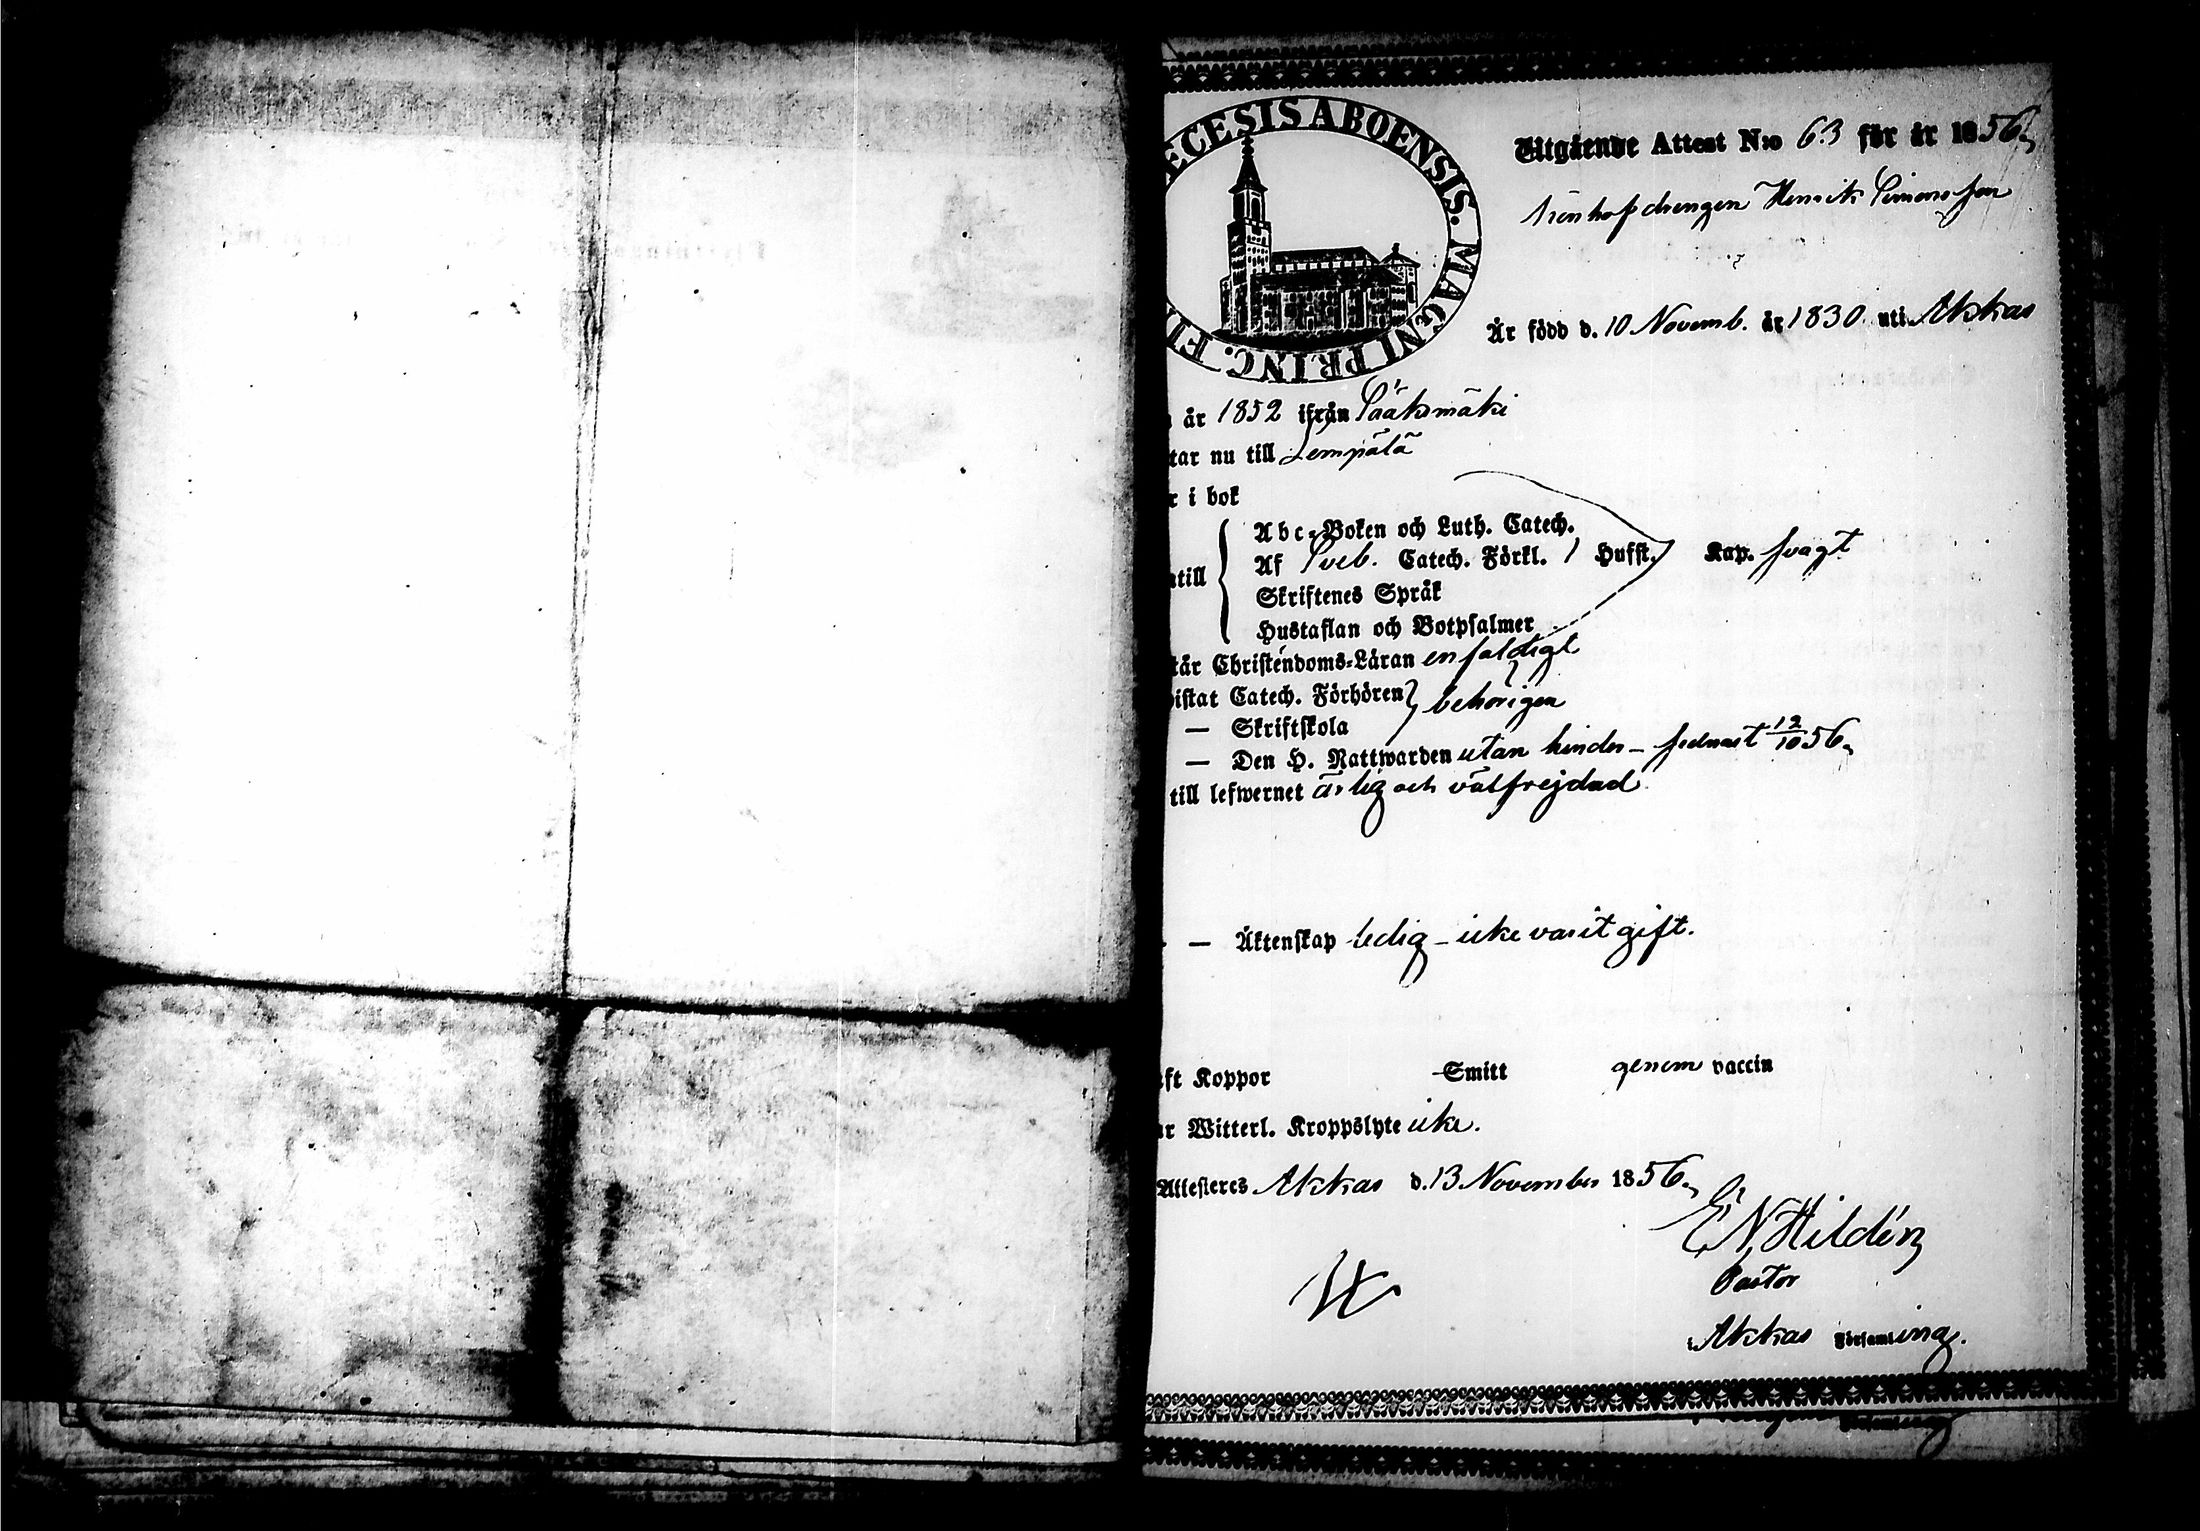 ECESIS ABOENSIS. MAGNI PRINC. FI
Utgående Attest N:o 63 för år 1856,
drengen Henrik Simonsson
Är född d. 10 Novemb. år 1830 uti Akkas
år 1852 ifrån Sääksmäki
tar nu till Lempälä
r i bok
till
Abc-Boken och Luth. Catech.
Af Sveb. Catech. Förkl. / Hufst. Kap. svagt
Skriftenes Språk
Hustaflan och Botpsalmer
tår Christendoms-Läran enfaldigt
istat Catech. Förhören behörigen
— Skriftskola
— Den H. Nattwarden utan hinder – sednast 12/10 56,
till lefwernet ärlig och välfrejdad
— Äktenskap ledig – icke varit gift.
ft Koppor Smitt genom vaccin
ar Witterl. Kroppslyte icke.
Attesteres Akkas d. 13 November 1856,
E N Hildén
Pastor
i Akkas Församling.